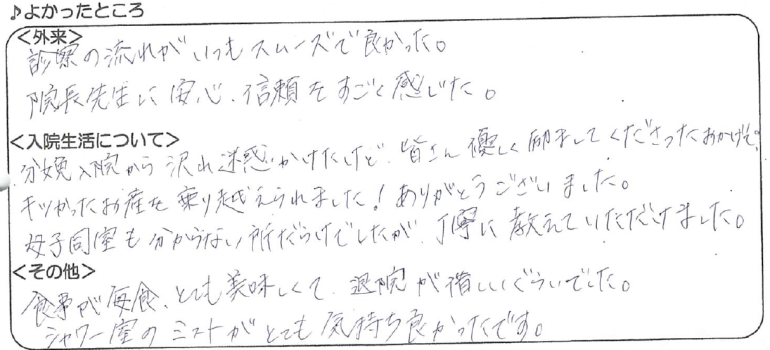 ♪よかったところ
<外来>
診察の流れがいつもスムーズで良かった。
院長先生に安心、信頼をすごく感じた。
<入院生活について>
分娩入院から沢山迷惑かけたけど、皆さん優しく励ましてくださったおかげで、
キツかったお産を乗り越えられました！ありがとうございました。
母子同室も分からない所だらけでしたが、丁寧に教えていただけました。
<その他>
食事が毎食、とても美味しくて、退院が惜しいぐらいでした。
シャワー室のミストがとても気持ち良かったです。